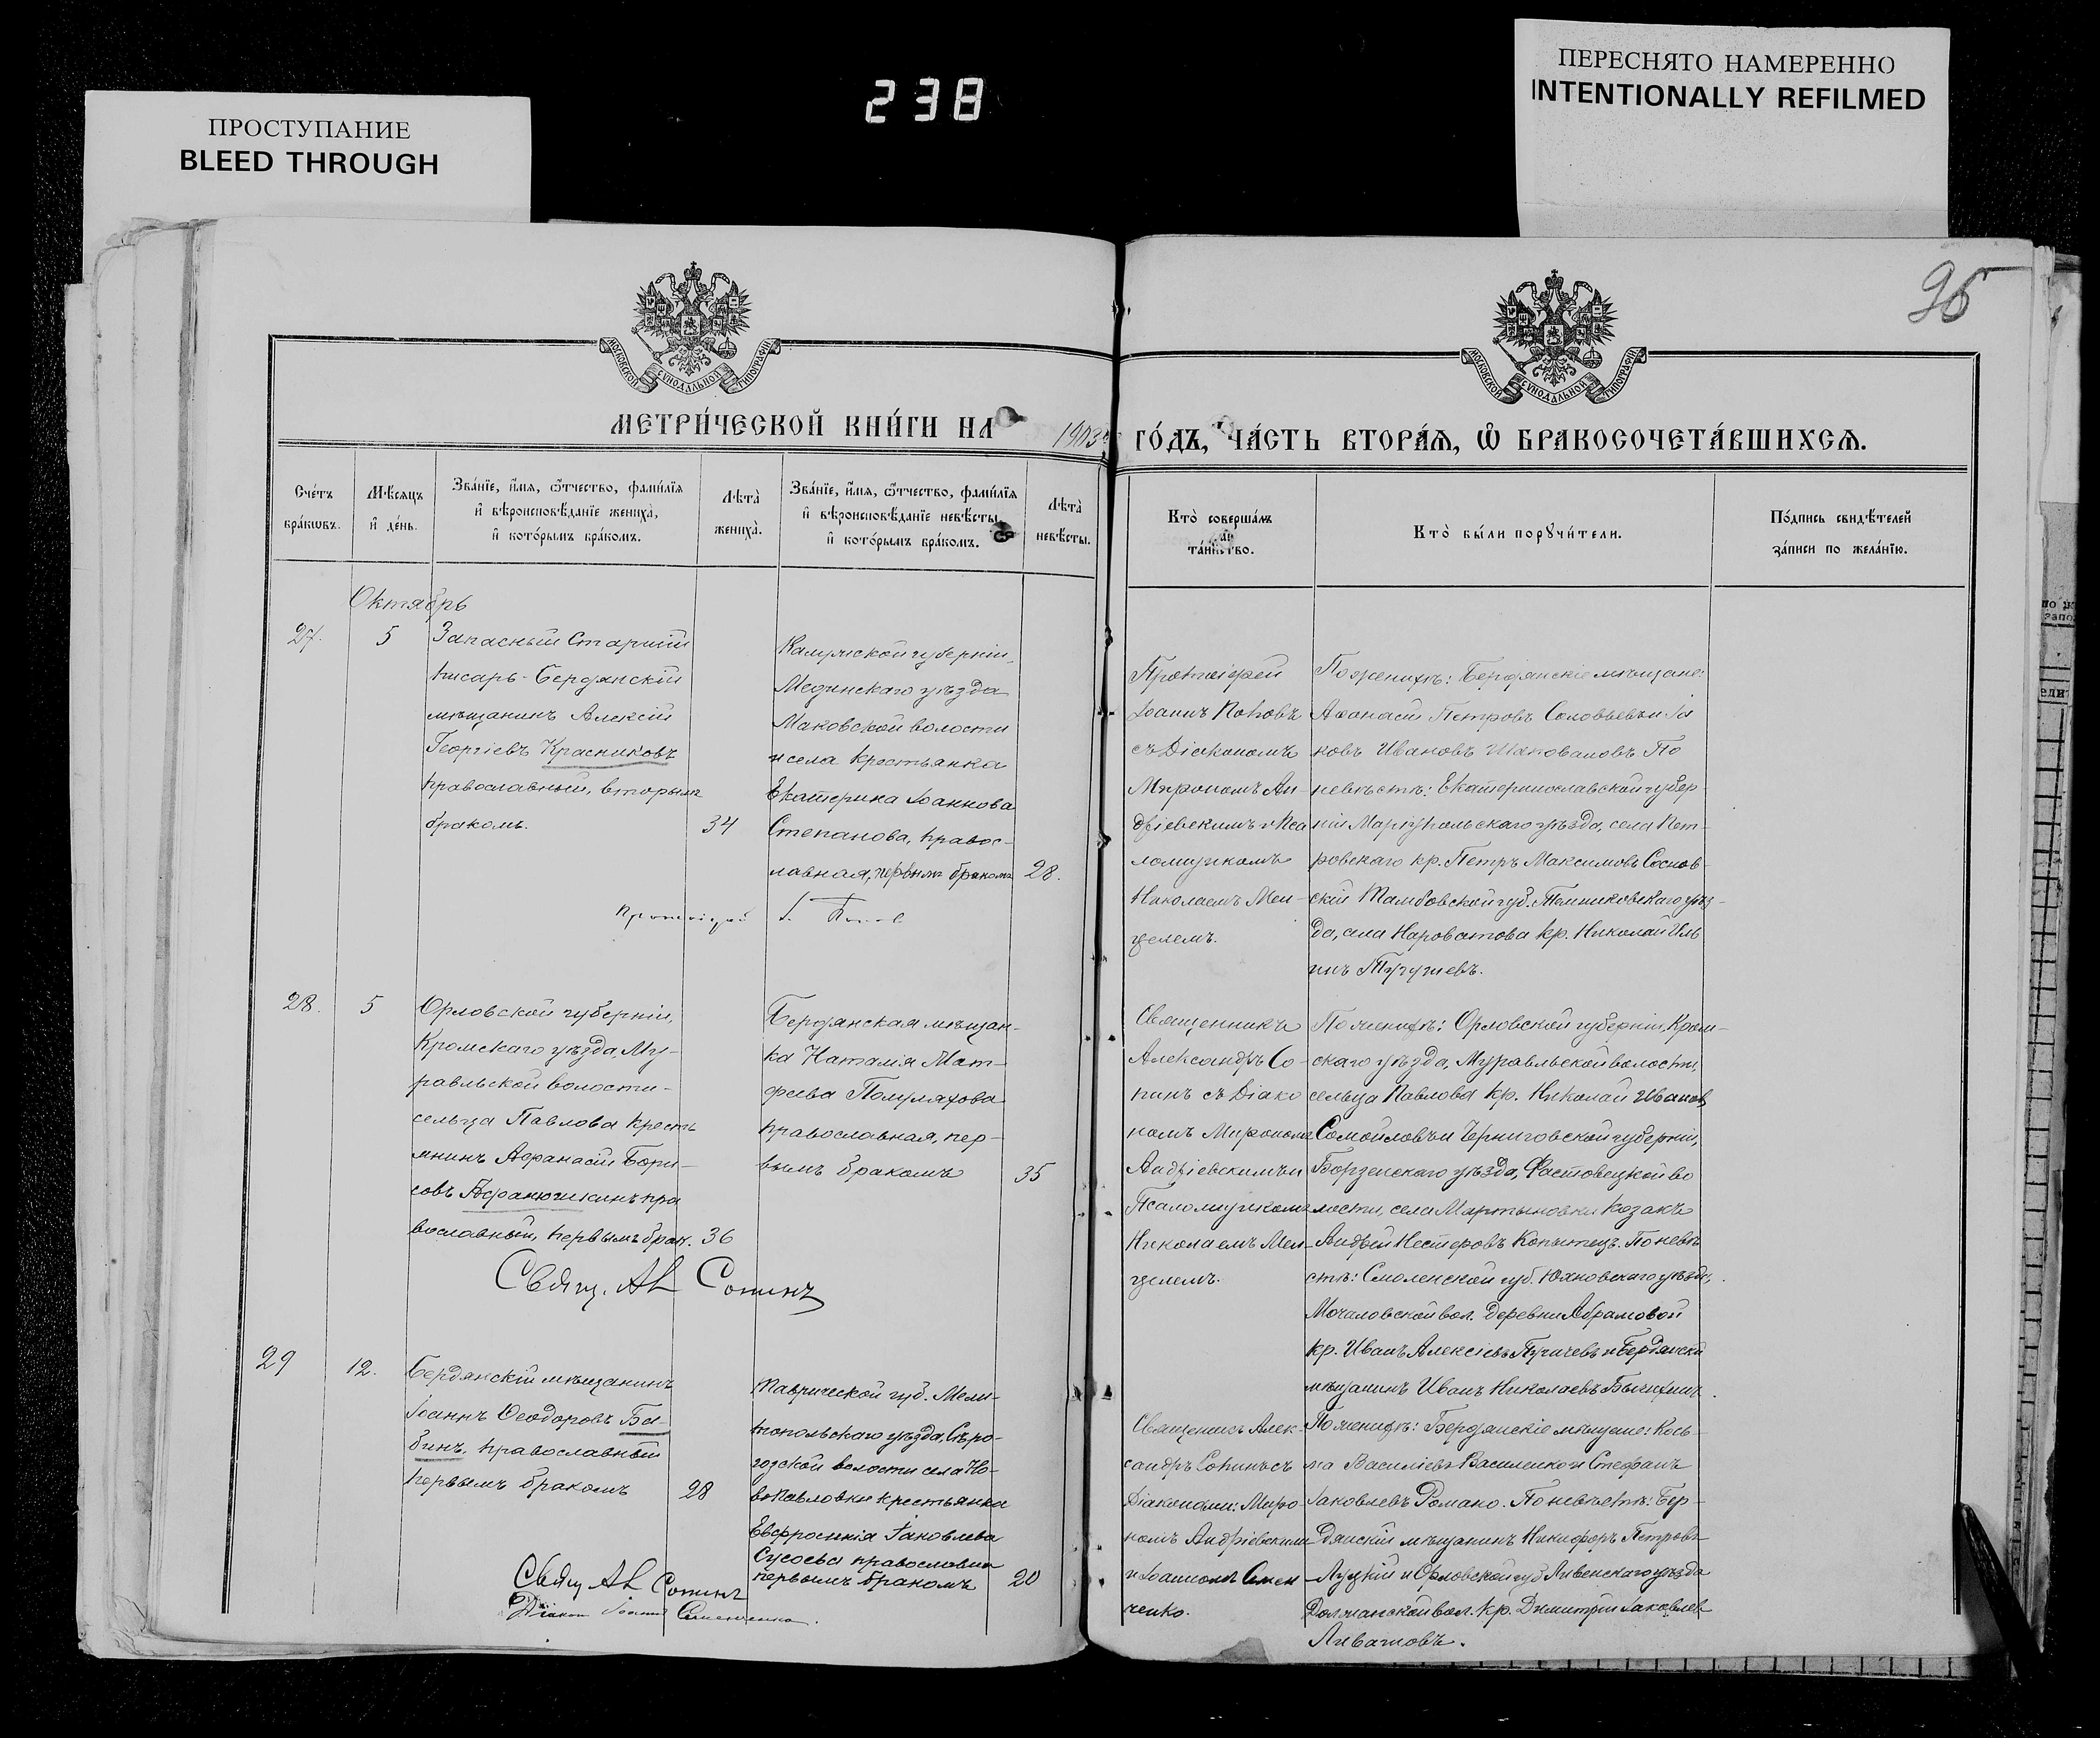 ПЕРЕСНЯТО НАМЕРЕННО
INTENTIONALLY REFILMED
238
ПРОСТУПАНИЕ
BLEED THROUGH
95
МОСКОВСКОЙ СѴНОДАЛЬНОЙ ТИПОГРАФІИ
МОСКОВСКОЙ СѴНОДАЛЬНОЙ ТИПОГРАФІИ
МЕТРИ́ЧЕСКОЙ КНИ́ГИ НА 1903
ГО́ДЪ, ЧА́СТЬ ВТОРА́Ѧ, Ѡ БРАКОСОЧЕТА́ВШИХСѦ.
Сче́тъ
бра́кѡвъ.
Мѣсѧцъ
и де́нь.
Зва́нїе, и́мѧ, ѻ҆́тчество, фами́лїѧ
и вѣроисповѣ́данїе жениха̀,
и кото́рымъ бра́комъ.
Лѣта̀
жениха̀.
Зва́нїе, и́мѧ, ѻ҆́тчество, фами́лїѧ
и вѣроисповѣ́данїе невѣ́сты,
и кото́рымъ бра́комъ.
Лѣта̀
невѣ́сты.
Кто̀ соверша́лъ
та́инство.
Кто̀ бы́ли порꙋчи́тели.
По́дпись свидѣ́телей
за́писи по жела́нїю.
Октябрь
27.
5
Запасный Старшій
писарь-Бердянскій
мѣщанинъ Алексій
Георгіевъ Красниковъ
православный, вторымъ
бракомъ.
34
Калужской губерніи,
Медынскаго уѣзда
Маковской волости
и села крестьянка
Екатерина Іоаннова
Степанова, правос-
лавная, первымъ бракомъ
28.
Протоіерей І. Поповъ
Протоіерей
Іоаннъ Поповъ
съ Діакономъ
Мирономъ Ан-
дріевскимъ и Пса
ломщикомъ
Николаемъ Мен-
целемъ.
По женихѣ: Бердянскіе мѣщане:
Афанасій Петровъ Соловьевъ и Іа
ковъ Ивановъ Шаповаловъ. По
невѣстѣ: Екатеринославской губер
ніи Маріупольскаго уѣзда, села Пет-
ровскаго кр. Петръ Максимовъ Соснов-
скій Тамбовской губ. Темниковскаго уѣз-
да, села Нароватова кр. Николай Иль
инъ
28.
5
Орловской губерніи,
Кромскаго уѣзда, Му-
равльской волости-
сельца Павлова кресть
янинъ Афанасій Бори-
совъ Афанюшкинъ пра
вославный, первымъ брак.
36
Бердянская мѣщан-
ка Наталія Мат-
феева Полуляхова
православная, пер-
вымъ бракомъ
35
Свящ. Ал Сопинъ
Священникъ
Александръ Со-
пинъ съ Діако
номъ Мирономъ
Андріевскимъ и
Псаломщикомъ
Николаемъ Мен-
целемъ.
По женихѣ: Орловской губерніи, Кром-
скаго уѣзда, Муравльской волости,
сельца Павлова кр. Николай Ивановъ
Самойловъ и Черниговской губерніи,
Борзенскаго уѣзда, Фастовецкой во
лости, села Мартыновки козакъ
Андрей Нестеровъ Копытецъ. По невѣ
стѣ: Смоленской губ. Юхновскаго уѣзда,
Мочаловской вол. деревни Абрамовой
кр. Иванъ Алексіевъ и Бердянскій
мѣщанинъ Иванъ Николаевъ
29
12.
Бердянскій мѣщанинъ
Іоаннъ Ѳеодоровъ Ба-
бинъ, православный
первымъ бракомъ
28
Таврической губ. Мели-
топольскаго уѣзда, Сѣро-
гозской волости села Но-
вопавловки крестьянка
Евфросинія Іаковлева
Сусоева православная
первымъ бракомъ
20
Свящ Ал Сопинъ
Діакон Іоаннъ Семенченко.
Священникъ Алек-
сандръ Сопинъ съ
Діаконами: Миро-
номъ Андріевскимъ
и Іоанномъ Семен
ченко.
По женихѣ: Бердянскіе мѣщане: Кось-
ма Василіевъ Василенко и Стефанъ
Іаковлевъ Романо. По невѣстѣ: Бер-
дянскій мѣщанинъ Никифоръ Петровъ
Луцкій и Орловской губ Ливенскаго уѣзда
Должанской вол. кр. Димитрій Іаковлев
Ливашовъ.